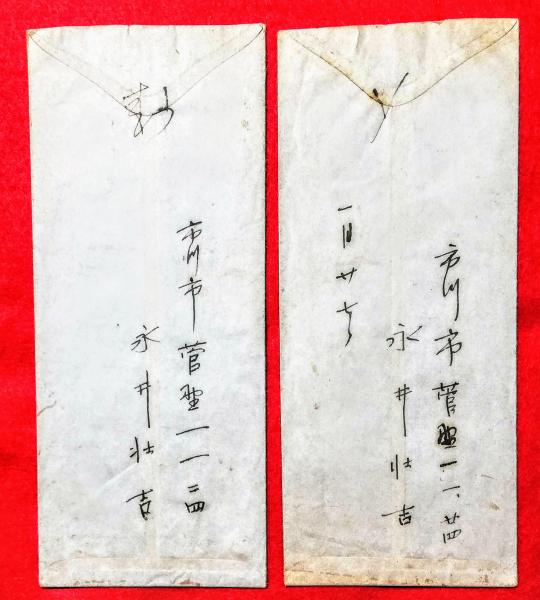 市川市菅野一一二四
永井壮吉
市川市菅野一一、廿四
永井壮吉
一月廿七日